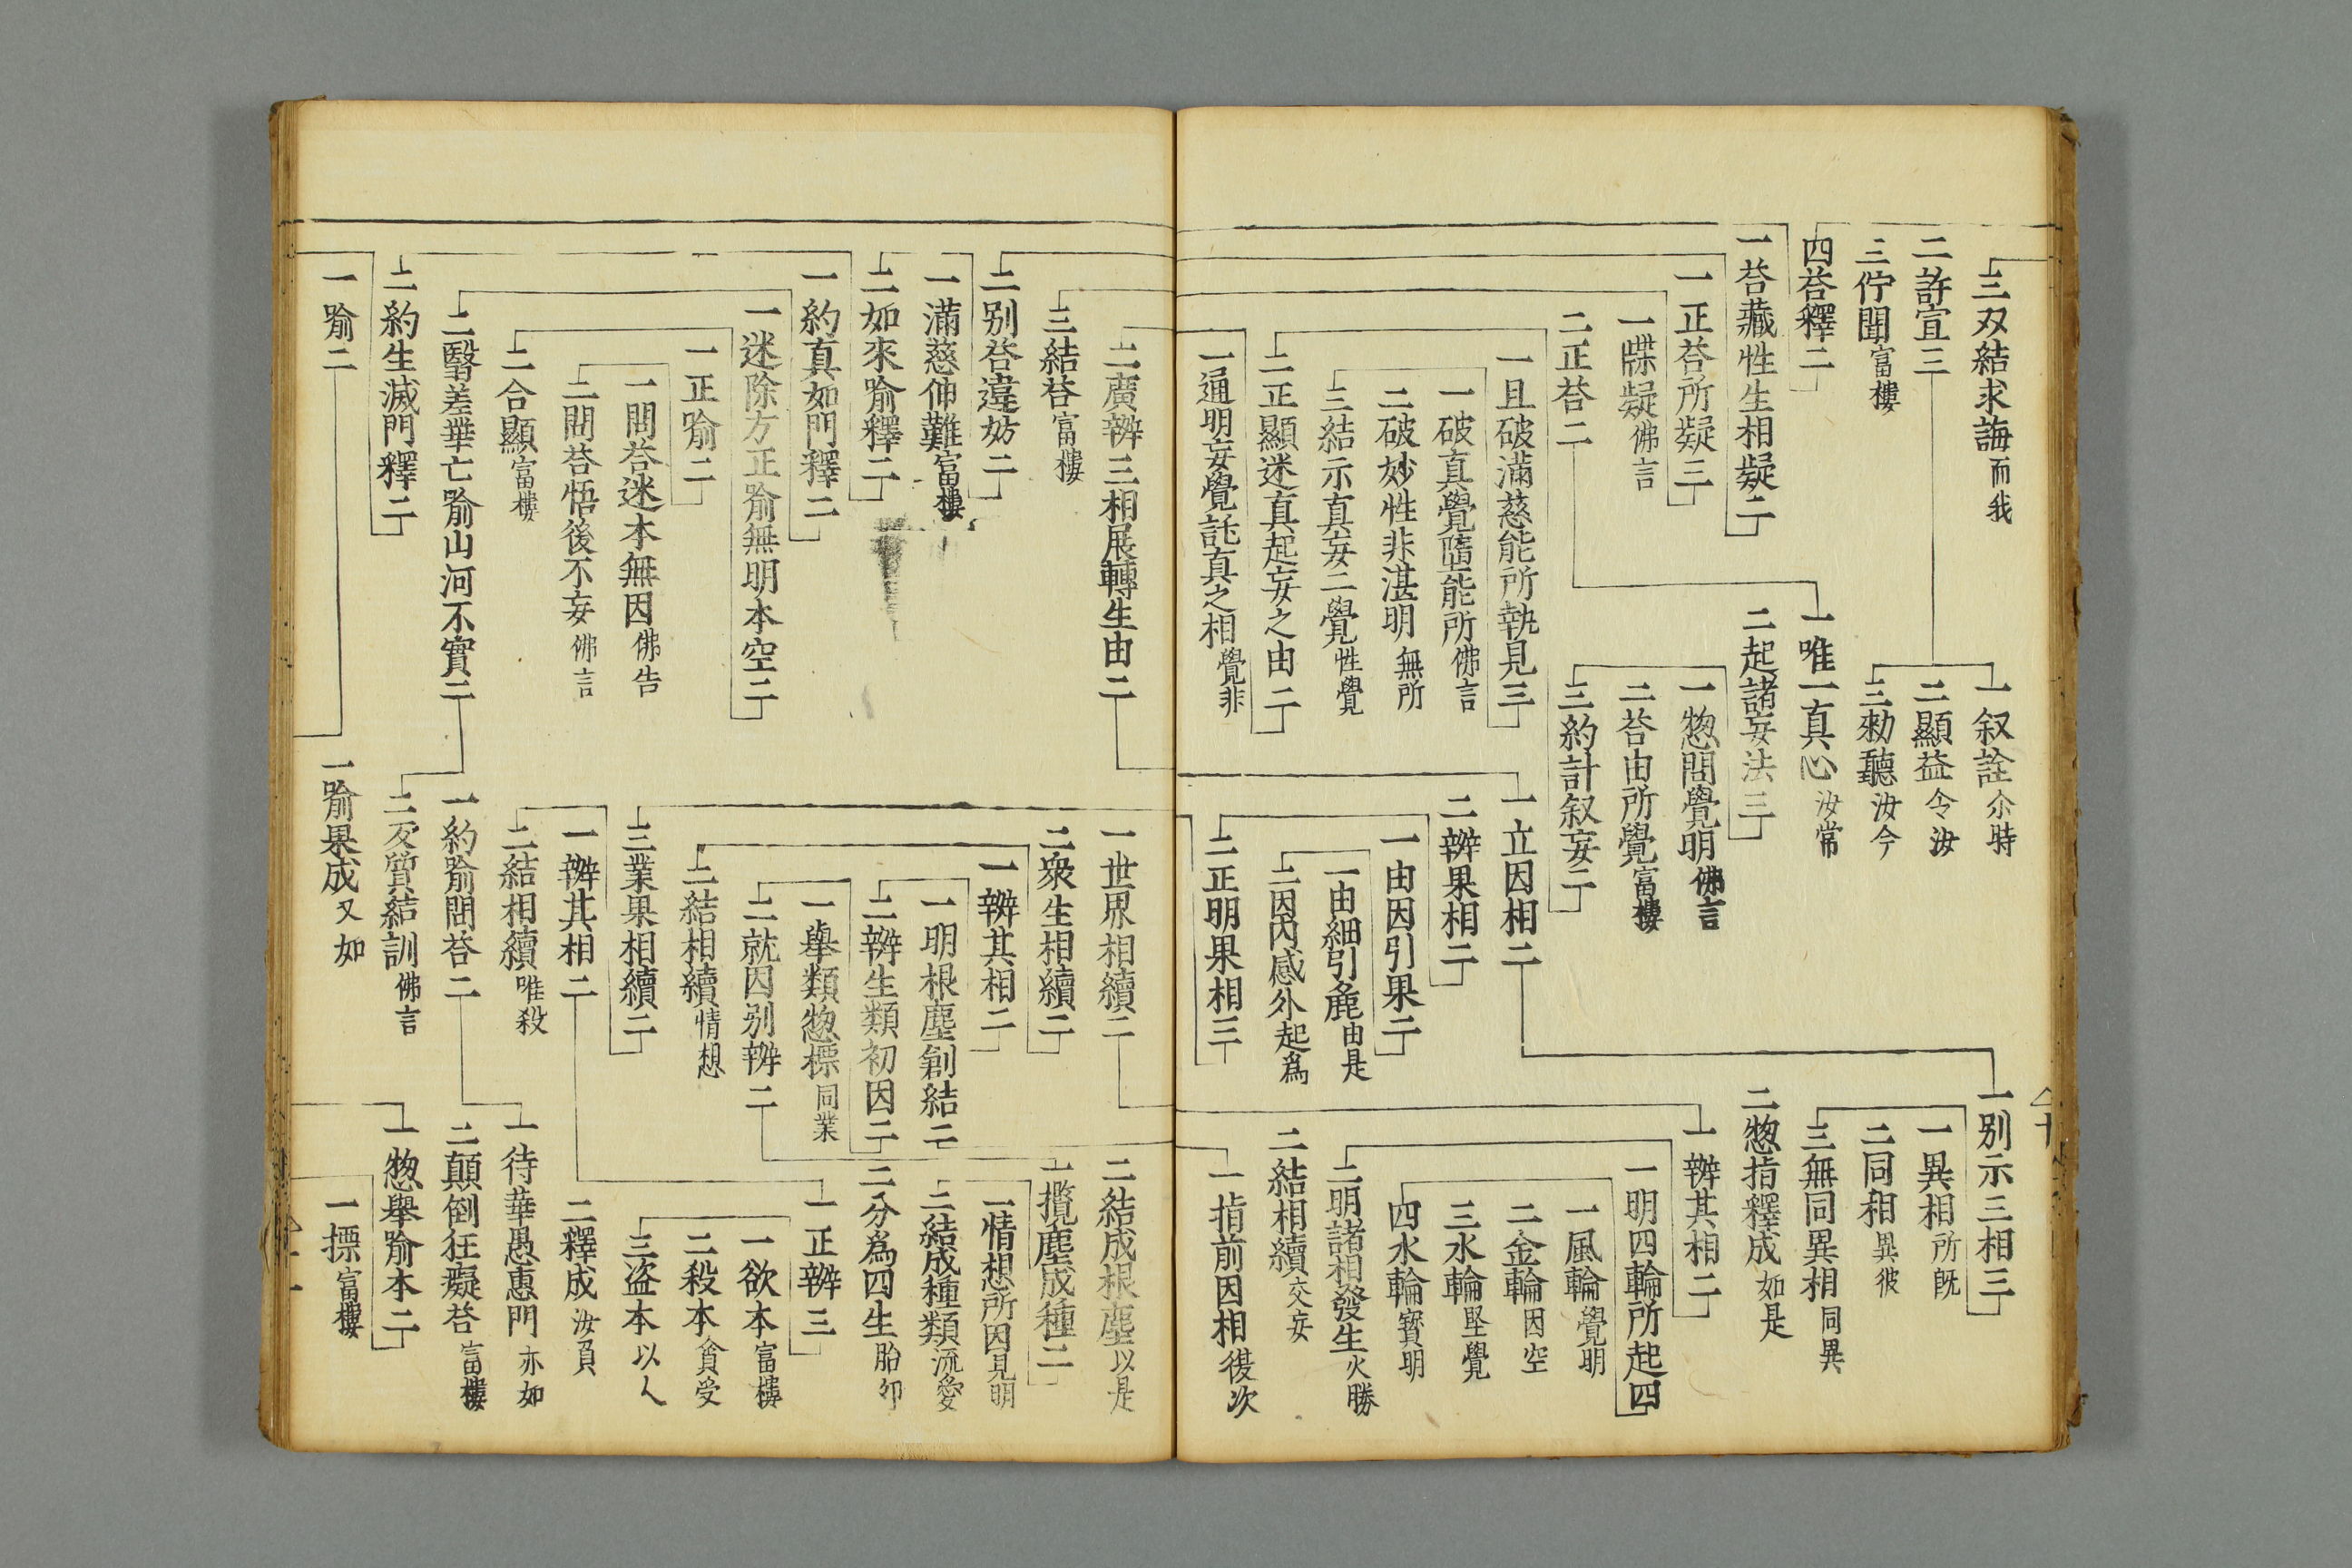 三双結求誨而我
二許宣三
三佇聞富樓
四荅釋二
一荅藏性生相疑二
一正荅所疑三
一牒疑佛言
二正荅二
一且破滿慈能所執見三
一破真覺墮能所佛言
二破妙性非湛明無所
三結示真妄二覺性覺
二正顯迷真起妄之由二
一通明妄覺託真之相覺非
一叙詮尒時
二顯益令汝
三勑聽汝今
一唯一真心汝常
二起諸妄法三
一惣問覺明佛言
二荅由所覺富樓
三約計叙妄二
一立因相二
二辨果相二
一由因引果二
一由細引麁由是
二因内感外起為
二正明果相三
一別示三相三
一異相所既
二同相異彼
三無同異相同異
二惣指釋成如是
一辨其相二
一明四輪所起四
一風輪覺明
二金輪因空
三水輪堅覺
四水輪寳明
二明諸相發生火勝
二結相續交妄
一指前因相復次
二廣辨三相展轉生由二
三結荅富樓
二別荅違妨二
一滿慈伸難富樓
二如來喻釋二
一約真如門釋二
一迷除方正喻無明本空二
一正喻二
一問荅迷本無因佛告
二問荅悟後不妄佛言
二合顯富樓
二翳差華亡喻山河不實二
二約生滅門釋二
一喻二
一世界相續二
二衆生相續二
一辨其相二
一明根塵創結二
二辨生類初因二
一舉類惣標同業
二就因別辨二
二結相續情想
三業果相續二
一辨其相二
二結相續唯殺
一約喻問荅二
二反質結訓佛言
一喻果成又如
二結成根塵以是
一攬塵成種二
一情想所因見明
二結成種類流愛
二分為四生胎卵
一正辨三
一欲本富樓
二殺本貪受
三盗本以人
二釋成汝負
一待華愚惠門亦如
二顛倒狂癡荅富樓
一惣舉喻本二
一摽富樓